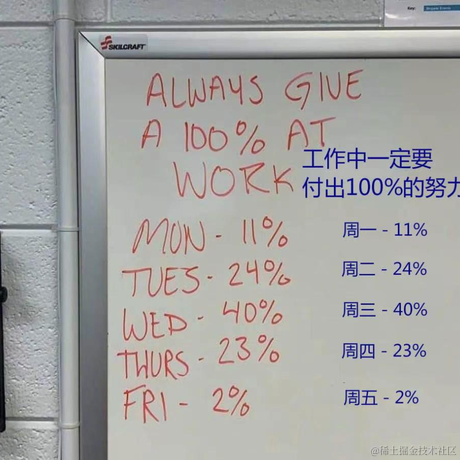 SKILCRAFT
ALWAYS GIVE
A 100% AT
WORK
工作中一定要
付出100%的努力
MON - 11%
周一 - 11%
TUES - 24%
周二 - 24%
WED - 40%
周三 - 40%
THURS - 23%
周四 - 23%
FRI - 2%
周五 - 2%
@稀土掘金技术社区